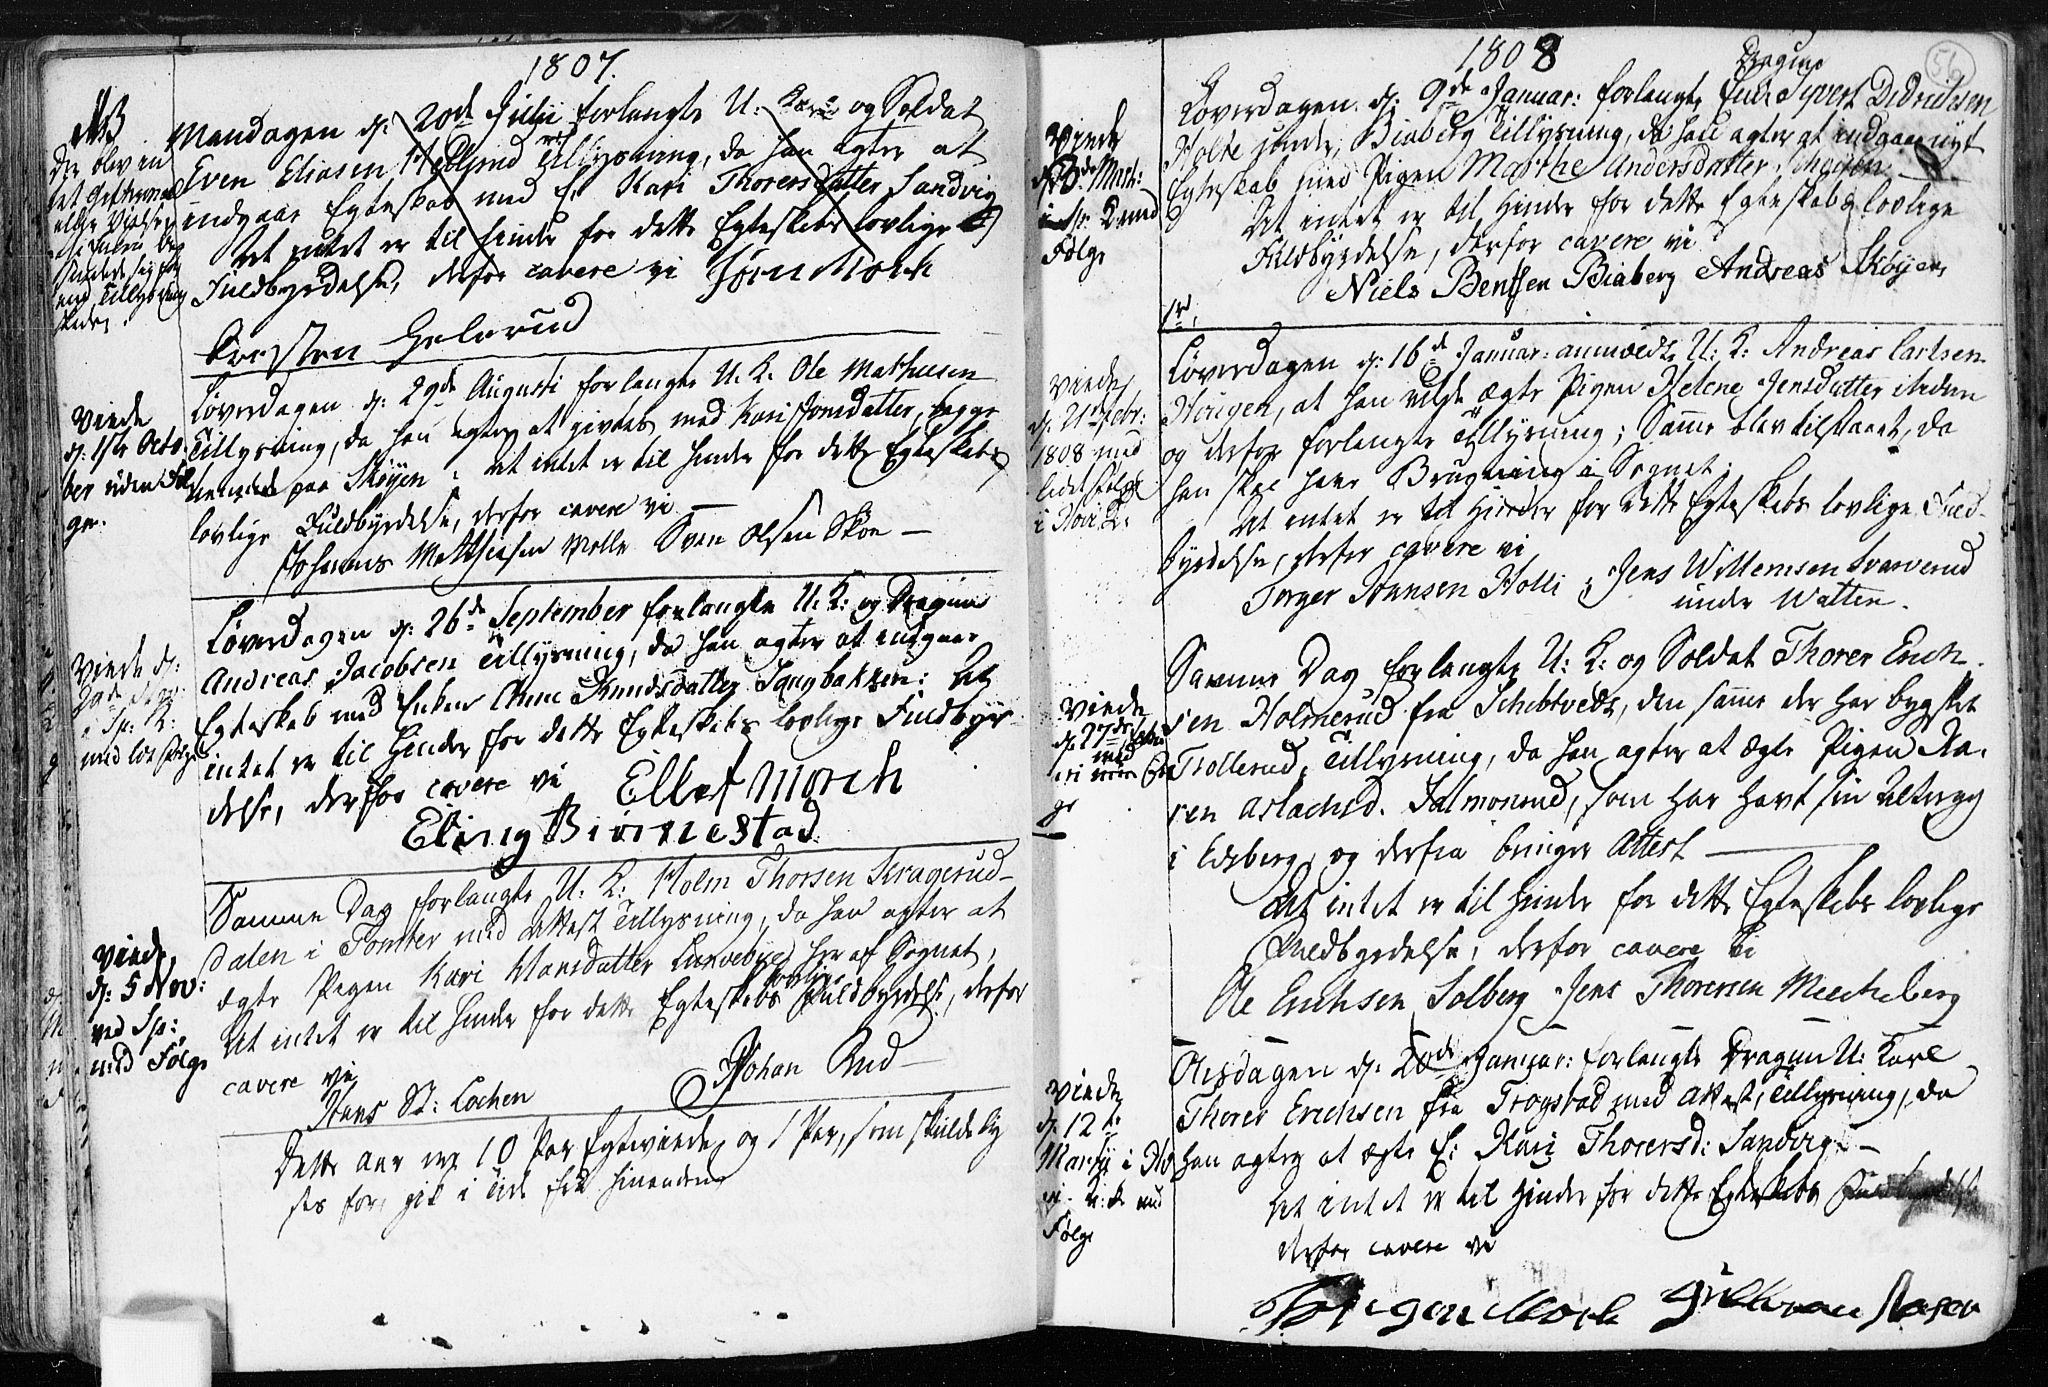 1807.
NB
Mandagen d: 20de Julii forlangte U: Karl og Soldat
Even Eliasen Tillysning, da han agter at
indgaae Egteskab med E: Kari Thorersdatter Sandvig
At intet er til Hinder for dette Egteskabs lovlige
Fuldbyrdelse, derfor cavere vi Jörn Mork
Kersten Gelerud
Der blev in
tet
eller Vielse
Tillysning
Löverdagen d: 29de Augusti forlangte U. K. Ole Mathiesen
Tillysning, da han agter at givtes med Kari Jonsdatter, begge
paa Skøyen. At intet er til Hinder for dette Egteskabs
lovlige Fuldbyrdelse, derfor cavere vi
Johannes Matthiesen Molle Sven Olsen Skoe
Viede
d: 1ste Octo
ber uden Føl
ge.
Löverdagen d: 26de September forlangte U. K: og Dragun
Andreas Jacobsen Tillysning, da han agter at indgaae
Egteskab med Enken Anne Knudsdatter Langbakken: At
intet er til Hinder for dette Egteskabs lovlige Fuldbyr
delse, derfor cavere vi Ellef Morch
Eling Biörnestad.
Viede d:
i Sp: K:
med Følge
Samme Dag forlangte U. K: Holm Thorsen Kragerud-
dalen i Tomter med Attest Tillysning, da han agter at
ægte Pigen Kari Hansdatter her af Sognet,
At intet er til Hinder for dette Egteskabs lovlige Fuldbyrdelse, derfor
cavere vi
Hans St: Lochen Johan Rud
Viede,
d: 5 Nov:
ved Sp:
med Følge
Dette Aar ere 10 Par Egteviede, og 1 Par, som skulde ly
ses for, gik i Tide fra hinanden
1808
56
Dragun
Löverdagen d: 9de Januar: forlangte Enk: Syvert Didrichsen
Holte under Biaberg Tillysning, da han agter at indgaae nyt
Egteskab med Pigen Marthe Andersdatter Skøyen
At intet er til Hinder for dette Egteskabs lovlige
Fuldbyrdelse, derfor cavere vi
Niels Bentsen Biaberg Andreas Skøyen
Viede
i Sp: K med
Følge
Löverdagen d: 16de Januar: anmeldte U: K: Andreas Carlsen
Hougen, at han vilde ægte Pigen Helene Jensdatter
og derfor forlangte Tillysning; Samme blev tilstaaet, da
han skal have Brugning i Sognet;
At intet er til Hinder for dette Egteskabs lovlige Fuld-
byrdelse, derfor cavere vi
Torger Hansen Holli Jens Willemsen Svarverud
under Watten.
Viede,
d: 21 Febr:
1808 med
lidet Følge
i Hovi K:
Samme Dag forlangte U: K: og Soldat Thorer Erich
sen Holmerud fra Schibtvedt, den samme der har bygslet
Trollerud, Tillysning, da han agter at ægte Pigen Ka-
ren Aslachsd. Salmonrud, som har havt sin Tilteregg
i Edsberg, og derfra bringer Attest
At intet er til Hinder for dette Egteskabs lovlige
Fuldbyrdelse, derfor cavere vi
Ole Erichsen Solberg Jens Thoresen Meecheberg
Viede
d: 27de
med
ge
Onsdagen d: 20de Januar: forlangte Dragun U: Karl
Thorer Erichsen fra Trogstad med Attest, Tillysning, da
han agter at ægte E: Kari Thorersd: Sandvig
At intet er til Hinder for dette Egteskabs Fuldbyrdelse
derfor cavere vi
Jörgen Mork
Viede
d: 12te
Martii i Ho
vi K: med
Følge